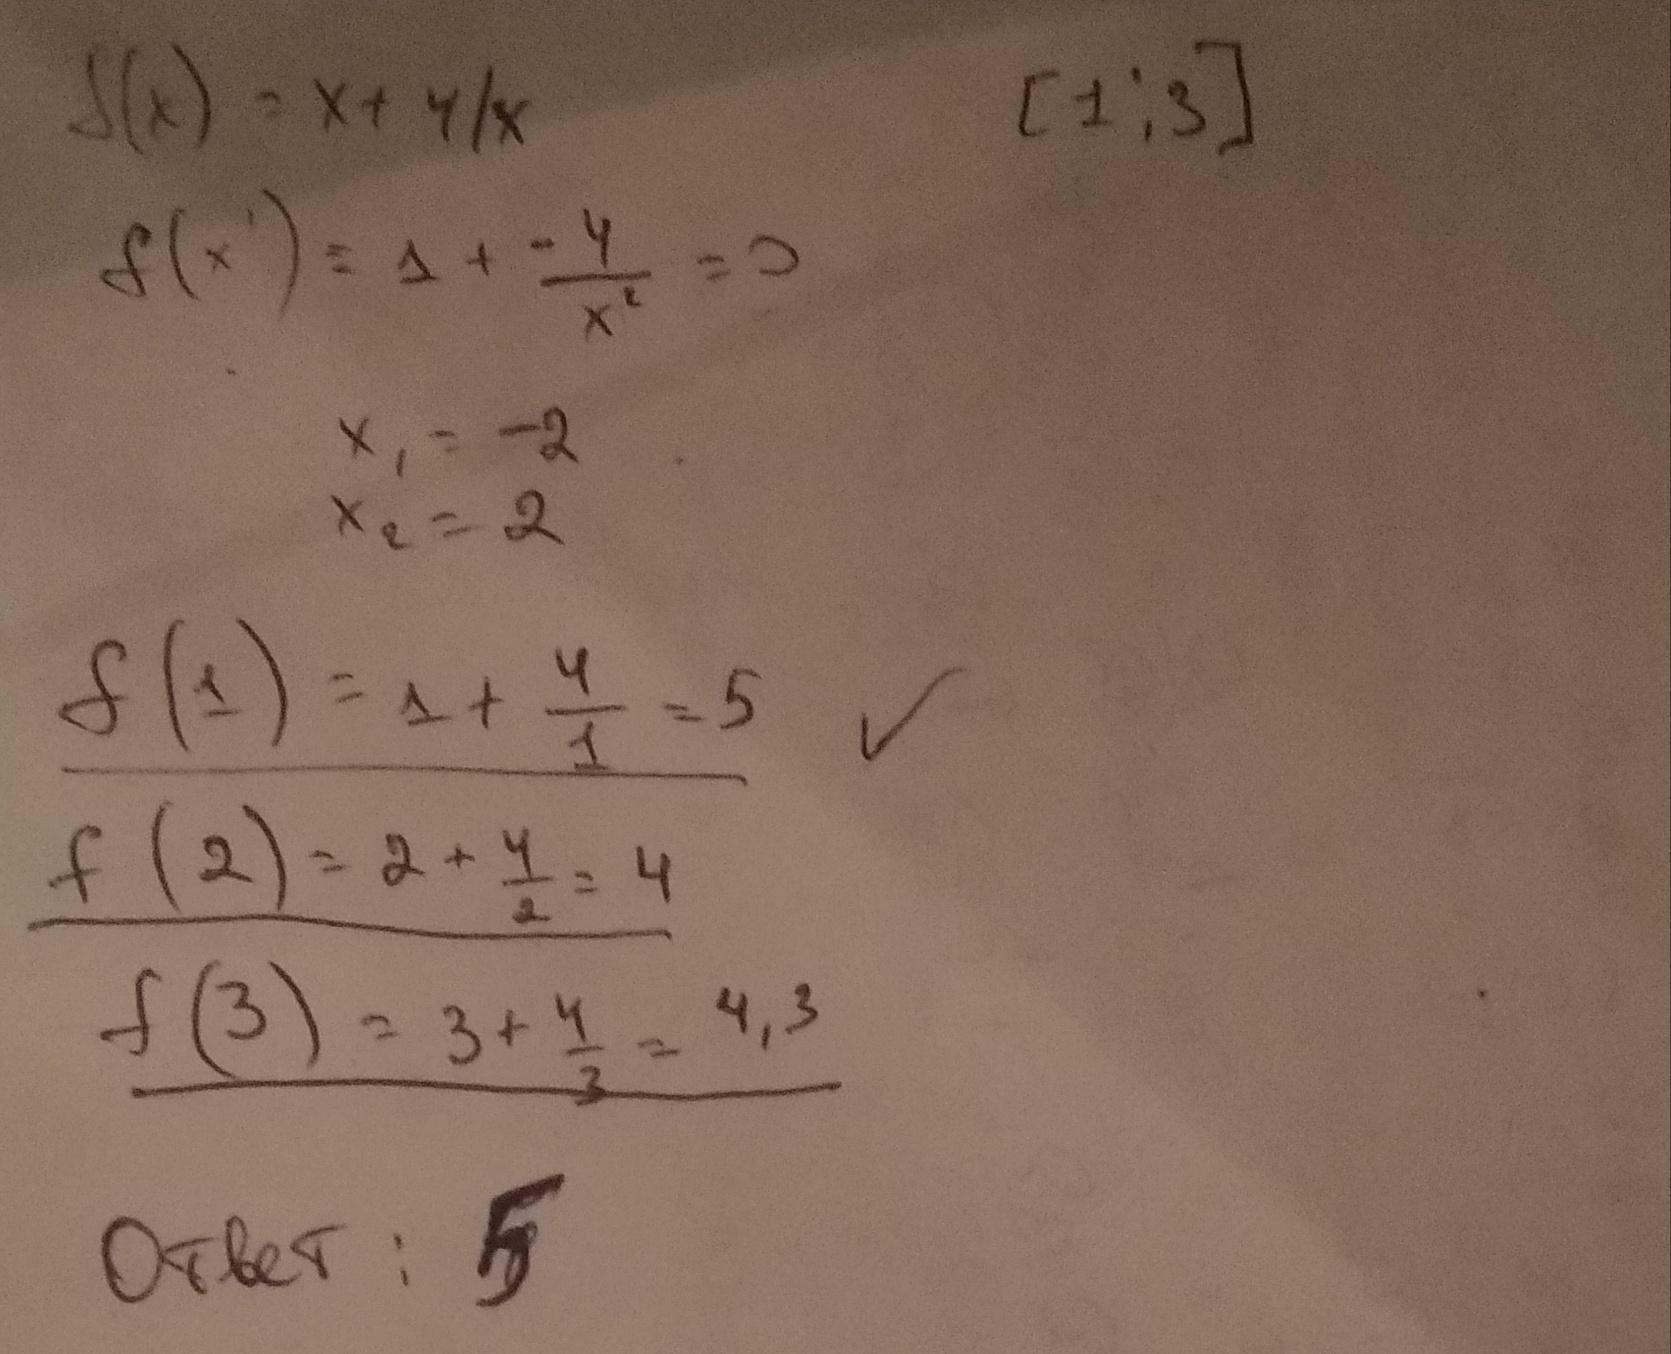 f(x) = x + 4/x [1;3]
f(x') = 1 + -4/x² = 0
x₁ = -2
x₂ = 2
f(1) = 1 + 4/1 = 5 ✓
f(2) = 2 + 4/2 = 4
f(3) = 3 + 4/3 = 4,3
Ответ: 5